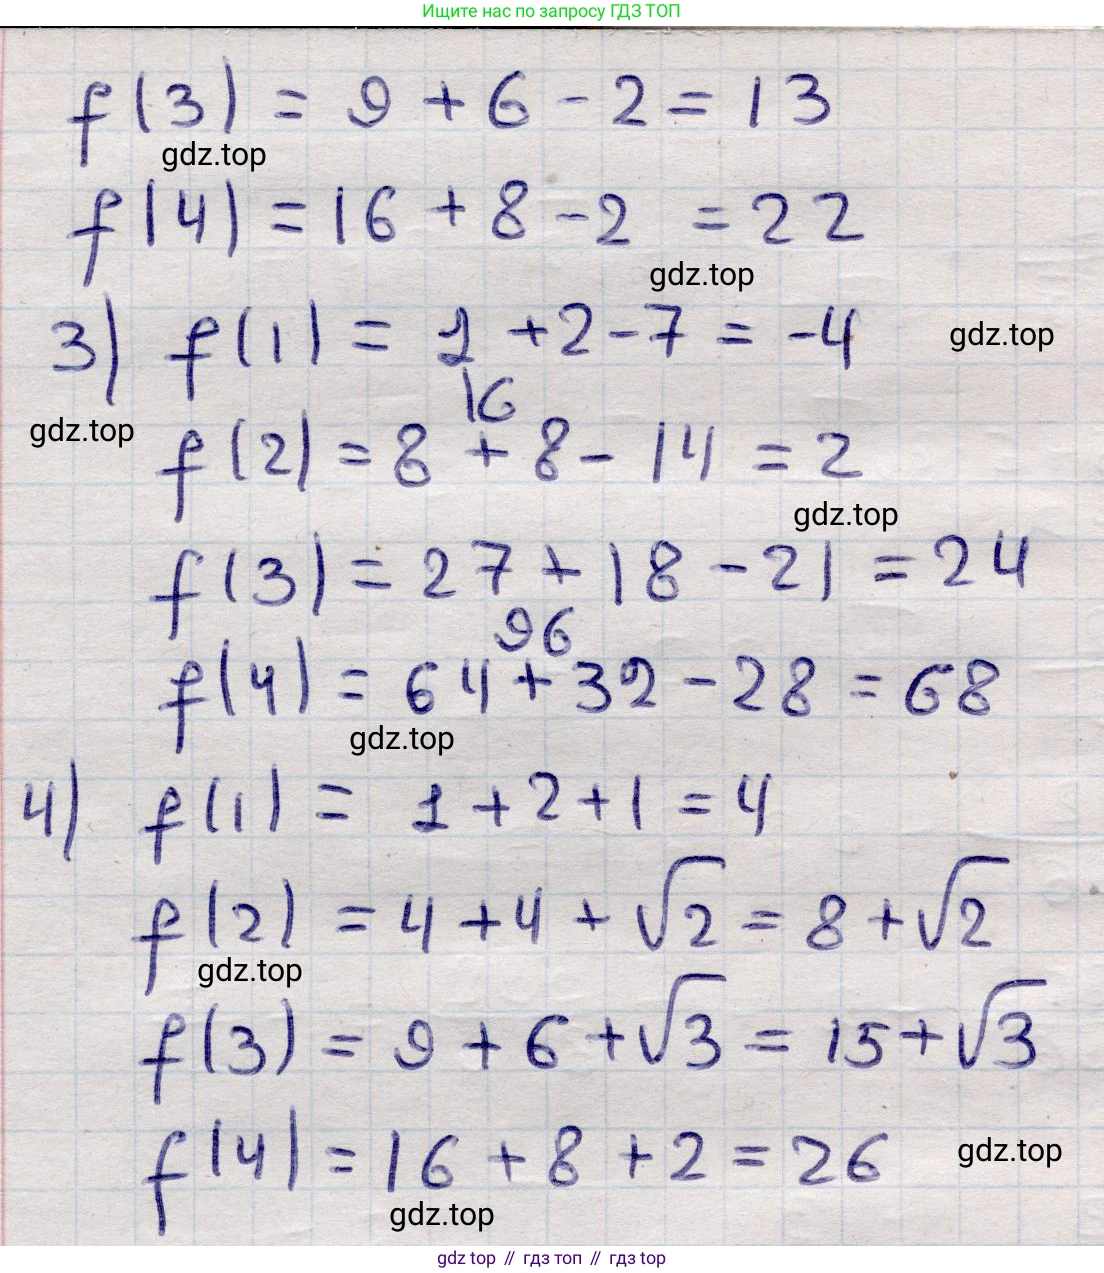 Ищите нас по запросу ГДЗ ТОП
f(3) = 9 + 6 - 2 = 13
gdz.top
f(4) = 16 + 8 - 2 = 22
gdz.top
3) f(1) = 1 + 2 - 7 = -4
gdz.top
16
gdz.top
f(2) = 8 + 8 - 14 = 2
gdz.top
f(3) = 27 + 18 - 21 = 24
96
f(4) = 64 + 32 - 28 = 68
gdz.top
4) f(1) = 1 + 2 + 1 = 4
f(2) = 4 + 4 + √2 = 8 + √2
gdz.top
f(3) = 9 + 6 + √3 = 15 + √3
f(4) = 16 + 8 + 2 = 26
gdz.top
gdz.top
gdz top // гдз топ // гдз top